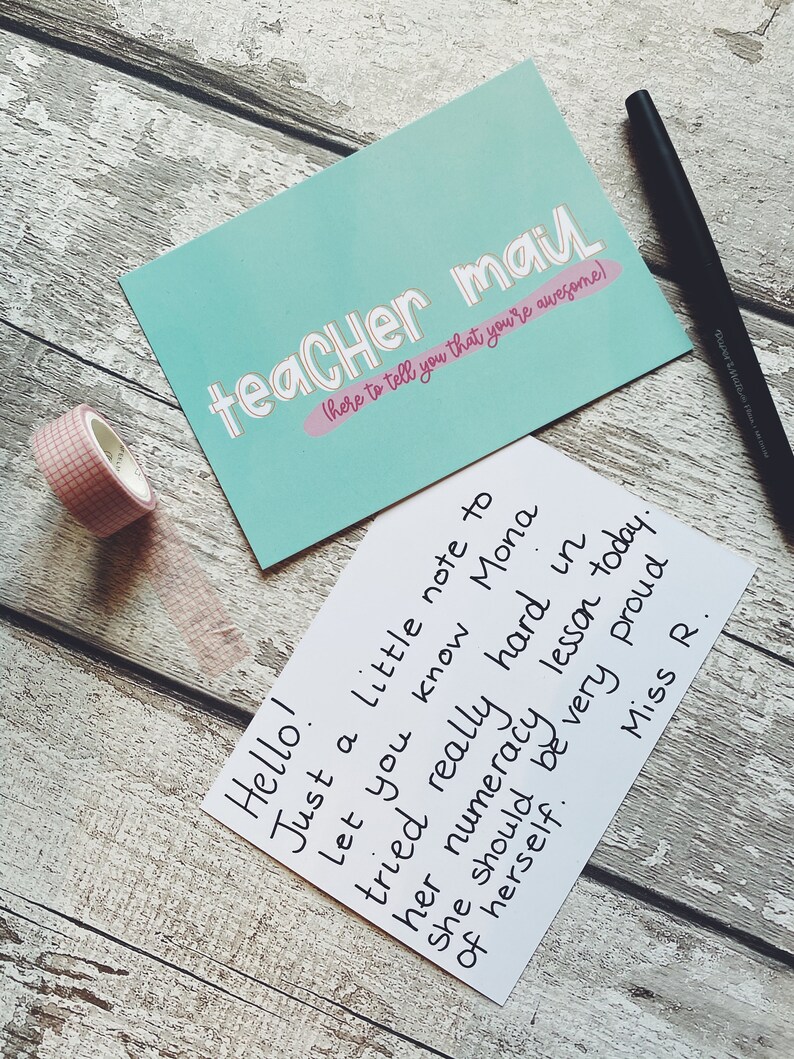 teacHer mail
(here to tell you that you're awesome)
Paper Mate
Hello!
Just a little note to
let you know Mona
tried really hard in
her numeracy lesson today.
she should be very proud
of herself.
Miss R.